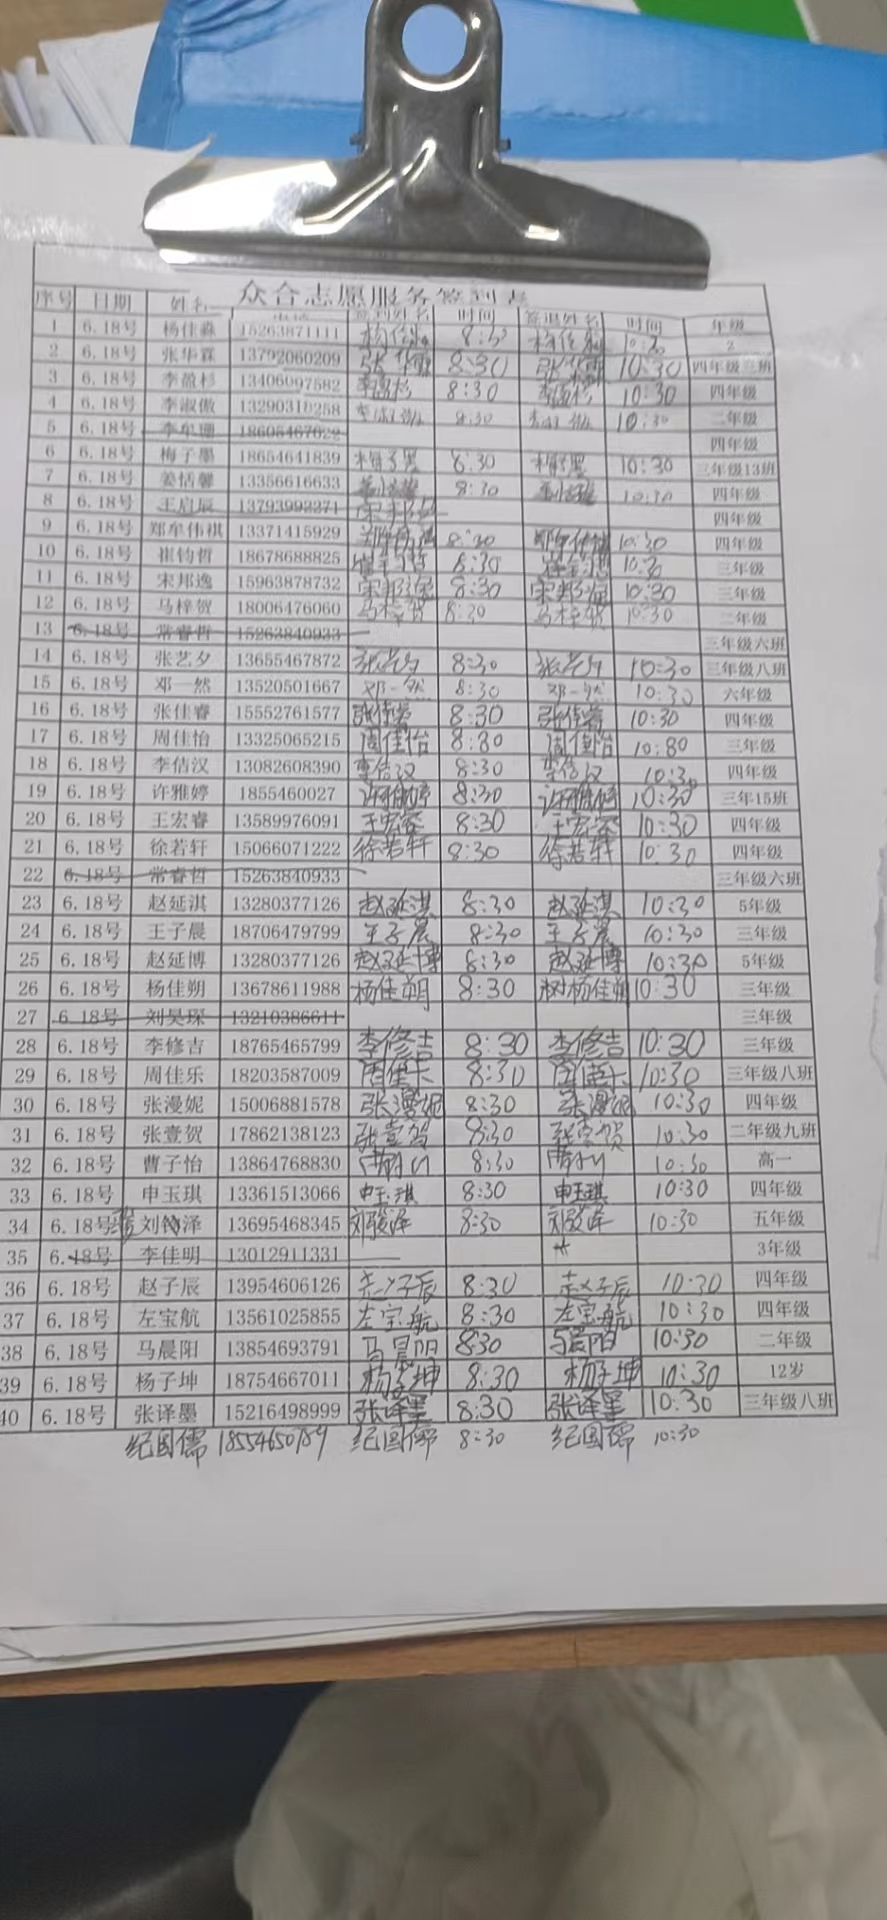 众合志愿服务签到表
序号 日期 姓名 签到姓名 时间 签退姓名 时间 年级
1 6.18号 杨佳淼 15263871111 8:30 2
2 6.18号 张华霖 13792060209 张华霖 8:30 张华霖 10:30 四年级三班
3 6.18号 李蕴杉 13406097582 8:30 10:30 四年级
4 6.18号 李淑傲 13290310258 8:30 10:30 二年级
5 6.18号 李牟珊 18605467022 四年级
6 6.18号 梅子墨 18654641839 梅子墨 8:30 梅子墨 10:30 三年级13班
7 6.18号 姜恬馨 13356616633 8:30 10:30 四年级
8 6.18号 王启辰 13793992271 四年级
9 6.18号 郑牟伟祺 13371415929 8:30 10:30 四年级
10 6.18号 崔钧哲 18678688825 8:30 三年级
11 6.18号 宋邦逸 15963878732 宋邦逸 8:30 宋邦逸 10:30 三年级
12 6.18号 马梓贺 18006476060 马梓贺 8:30 马梓贺 10:30 二年级
13 6.18号 常睿哲 15263840933 三年级六班
14 6.18号 张艺夕 13655467872 张艺夕 8:30 张艺夕 10:30 三年级八班
15 6.18号 邓一然 13520501667 邓一然 8:30 邓一然 10:30 六年级
16 6.18号 张佳睿 15552761577 张佳睿 8:30 张佳睿 10:30 四年级
17 6.18号 周佳怡 13325065215 周佳怡 8:30 周佳怡 10:80 三年级
18 6.18号 李佶汉 13082608390 李佶汉 8:30 李佶汉 10:30 四年级
19 6.18号 许雅婷 1855460027 许雅婷 8:30 许雅婷 10:30 三年15班
20 6.18号 王宏睿 13589976091 王宏睿 8:30 王宏睿 10:30 四年级
21 6.18号 徐若轩 15066071222 徐若轩 8:30 徐若轩 10:30 四年级
22 6.18号 常睿哲 15263840933 三年级六班
23 6.18号 赵延淇 13280377126 赵延淇 8:30 赵延淇 10:30 5年级
24 6.18号 王子晨 18706479799 王子晨 8:30 王子晨 10:30 三年级
25 6.18号 赵延博 13280377126 赵延博 8:30 赵延博 10:30 5年级
26 6.18号 杨佳朔 13678611988 杨佳朔 8:30 杨佳朔 10:30 三年级
27 6.18号 刘昊琛 13210386611 三年级
28 6.18号 李修吉 18765465799 李修吉 8:30 李修吉 10:30 三年级
29 6.18号 周佳乐 18203587009 周佳乐 8:30 周佳乐 10:30 三年级八班
30 6.18号 张漫妮 15006881578 张漫妮 8:30 张漫妮 10:30 四年级
31 6.18号 张壹贺 17862138123 张壹贺 8:30 张壹贺 10:30 二年级九班
32 6.18号 曹子怡 13864768830 8:30 10:30 高一
33 6.18号 申玉琪 13361513066 申玉琪 8:30 申玉琪 10:30 四年级
34 6.18号 刘 泽 13695468345 刘骏泽 8:30 刘骏泽 10:30 五年级
35 6.18号 李佳明 13012911331 3年级
36 6.18号 赵子辰 13954606126 赵子辰 8:30 赵子辰 10:30 四年级
37 6.18号 左宝航 13561025855 左宝航 8:30 左宝航 10:30 四年级
38 6.18号 马晨阳 13854693791 马晨阳 8:30 马晨阳 10:30 二年级
39 6.18号 杨子坤 18754667011 杨子坤 8:30 杨子坤 10:30 12岁
40 6.18号 张译墨 15216498999 张译墨 8:30 张译墨 10:30 三年级八班
纪国儒 纪国儒 8:30 纪国儒 10:30